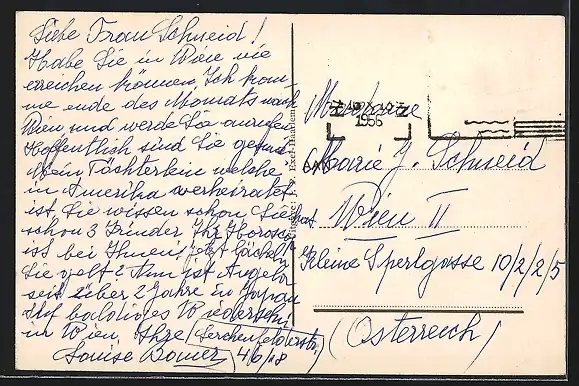 Liebe Frau Schneid!
Habe Sie in Wien nie
erreichen können, Ich kom-
me ende des Monats nach
Wien und werde Sie anrufen
Hoffentlich sind Sie gesund
Mein Töchterlein welche
in Amerika verheiratet
ist Sie wissen schon Sie hat
schon 3 Kinder Ihr Horoscop
ist bei Ihnen, jetzt lächeln
Sie gelt? Nun ist
seit über 2 Jahre in Japan
Auf baldiges Wiedersehn
in Wien, Ihre (Lerchenfelderstr.
Louise 46/18)
1956
Madame
Marie J. Schneid
Wien II
Kleine Sperlgasse 10/2/2/5
(Österreich)